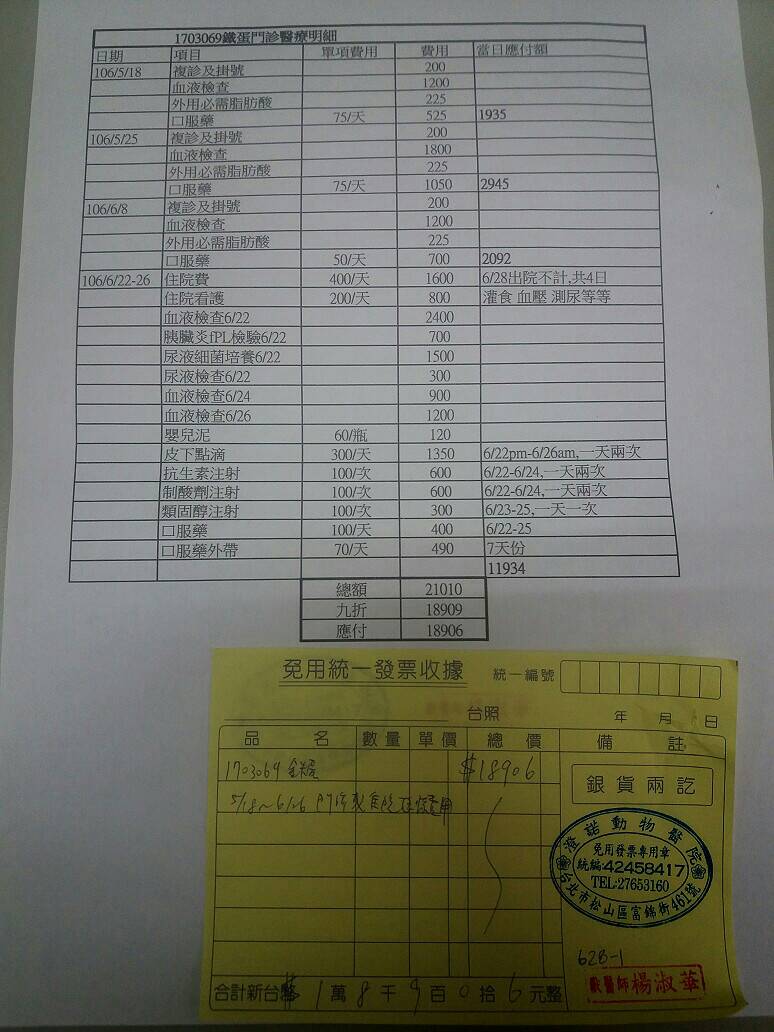 1703069鐵蛋門診醫療明細
日期 項目 單項費用 費用 當日應付額
106/5/18 複診及掛號 200
血液檢查 1200
外用必需脂肪酸 225
口服藥 75/天 525 1935
106/5/25 複診及掛號 200
血液檢查 1800
外用必需脂肪酸 225
口服藥 75/天 1050 2945
106/6/8 複診及掛號 200
血液檢查 1200
外用必需脂肪酸 225
口服藥 50/天 700 2092
106/6/22-26 住院費 400/天 1600 6/28出院不計,共4日
住院看護 200/天 800 灌食 血壓 測尿等等
血液檢查6/22 2400
胰臟炎fPL檢驗6/22 700
尿液細菌培養6/22 1500
尿液檢查6/22 300
血液檢查6/24 900
血液檢查6/26 1200
嬰兒泥 60/瓶 120
皮下點滴 300/天 1350 6/22pm-6/26am,一天兩次
抗生素注射 100/次 600 6/22-6/24,一天兩次
制酸劑注射 100/次 600 6/22-6/24,一天兩次
類固醇注射 100/次 300 6/23-25,一天一次
口服藥 100/天 400 6/22-25
口服藥外帶 70/天 490 7天份
11934
總額 21010
九折 18909
應付 18906
免用統一發票收據 統一編號
台照 年 月 日
品 名 數量 單價 總 價 備 註
1703069 $18906
銀貨兩訖
5/18~6/26
澄諾動物醫院
免用發票專用章
統編:42458417
TEL:27653160
台北市松山區富錦街461號
628-1
獸醫師楊淑華
合計新台幣 1萬8千9百0拾6元整